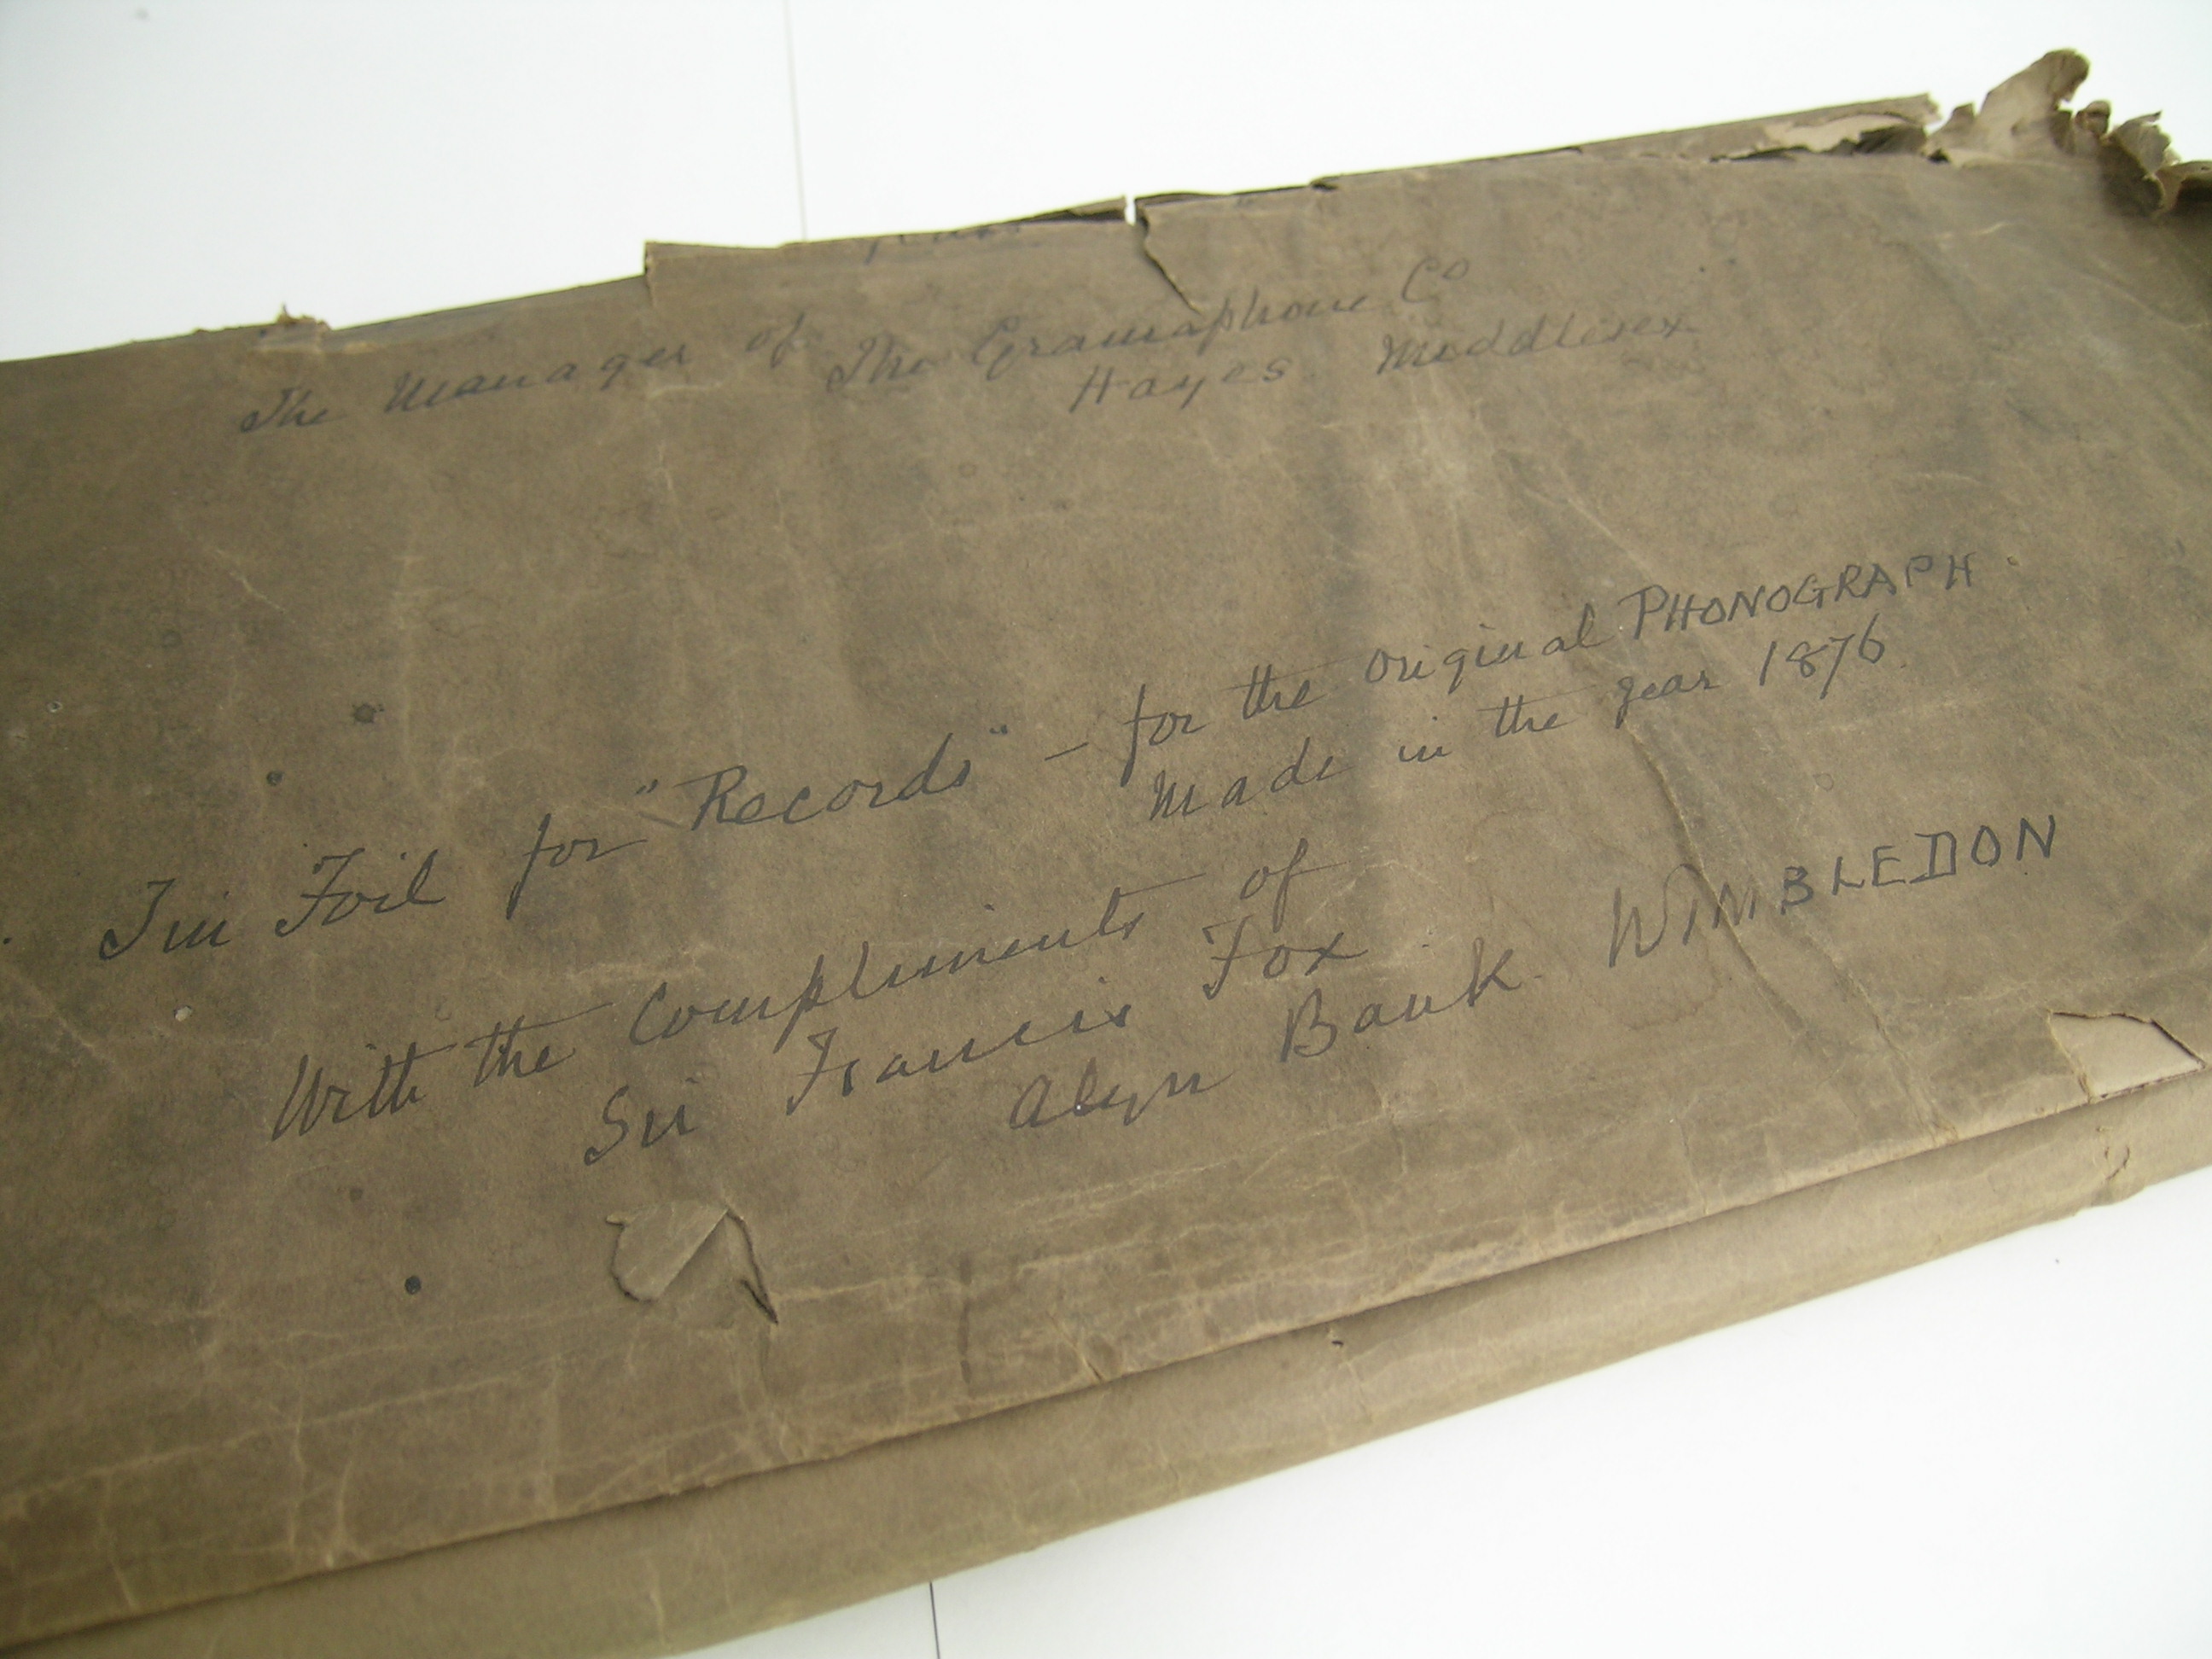 The Manager of
The Gramaphone Co
Hayes. Middlesex
Tin Foil for "Records" – for the original PHONOGRAPH.
Made in the year 1876.
With the Compliments of
Sir Francis Fox
Alyn Bank. WIMBLEDON